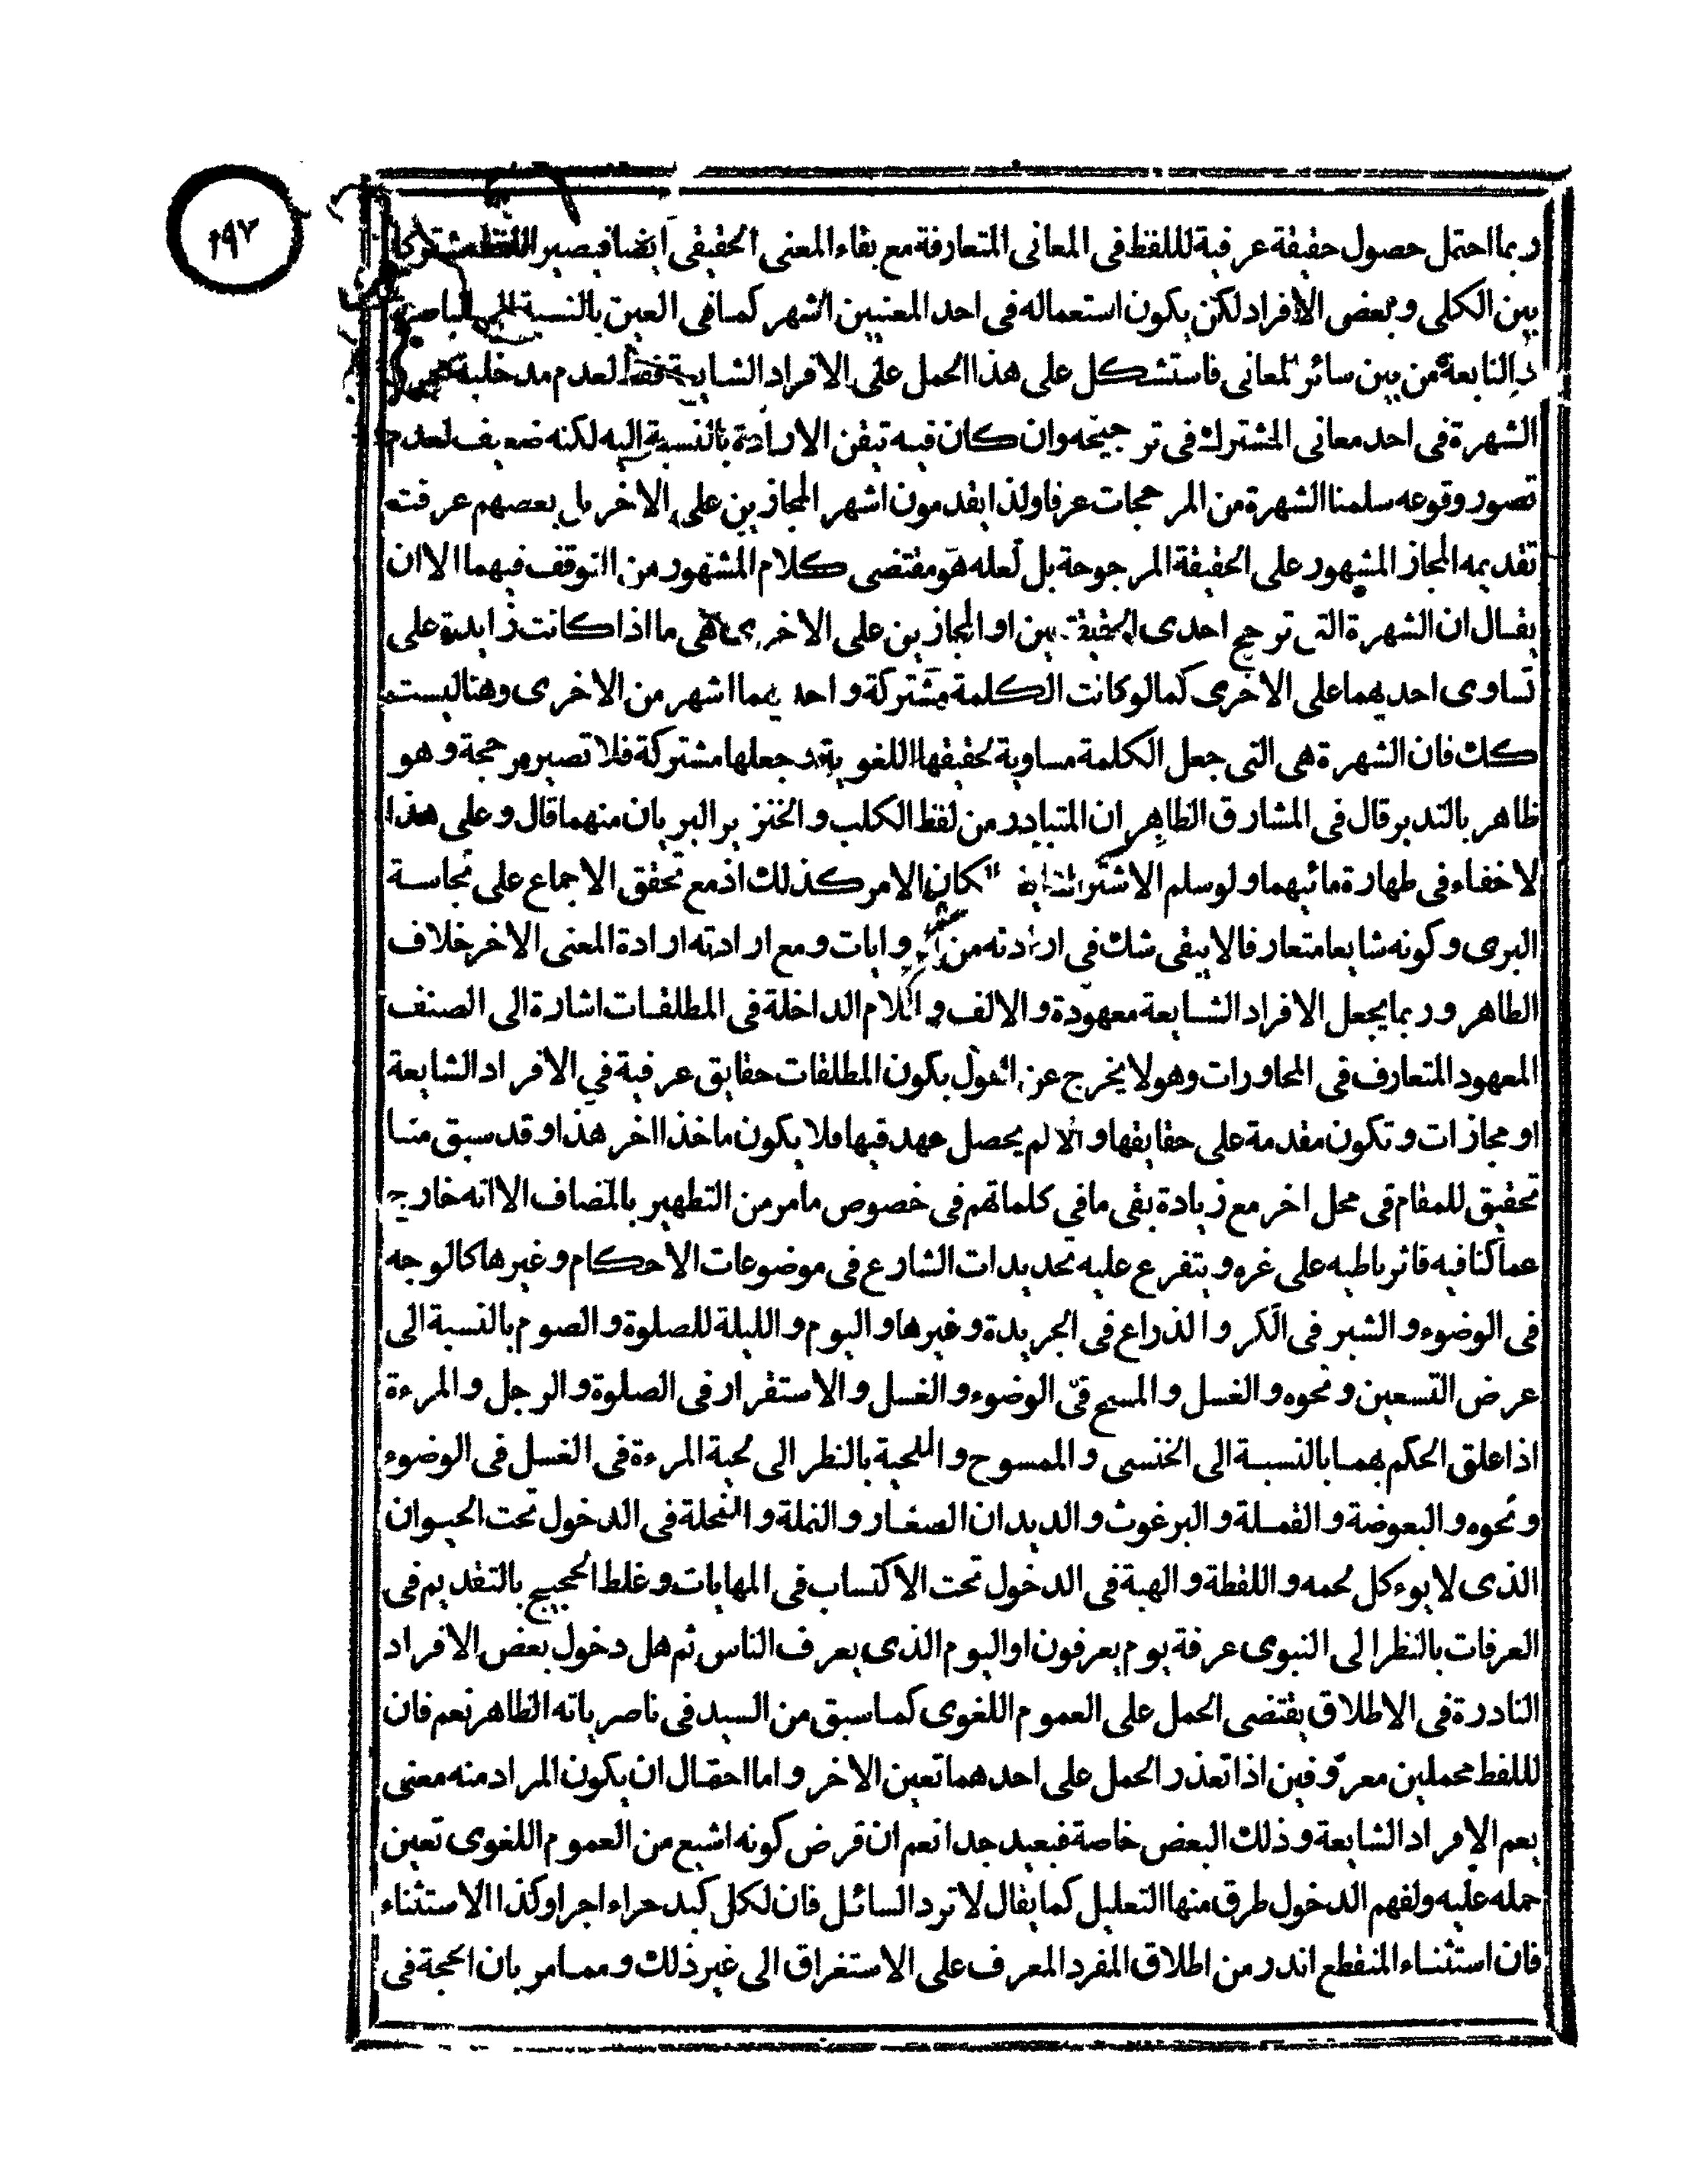 ١٩٧
ربما احتمل حصول حقيقة عرفية لللفظ فى المعانى المتعارفة مع بقاء المعنى الحقيقى ايضا فيصير اللفظ مشتركا
بين الكلى وبعض الافراد لكن يكون استعماله فى احد المعنيين اشهر كما فى العين بالنسبة الى الباصرة
والنابعة من بين سائر المعانى فاستشكل على هذا الحمل على الافراد الشايعة فقط لعدم مدخلية
الشهرة فى احد معانى المشترك فى ترجيحه وان كان فيه تيقن الارادة بالنسبة اليه لكنه ضعيف لعدم
تصور وقوعه سلمنا الشهرة من المرجحات عرفا ولذا يقدمون اشهر المجازين على الاخر بل بعضهم عرفته
تقديمه المجاز المشهور على الحقيقة المرجوحة بل لعله هو مقتضى كلام المشهور من التوقف فيهما الا ان
يقال ان الشهرة التى ترجح احدى الحقيقتين او المجازين على الاخرى هى ما اذا كانت زايدة على
تساوى احديهما على الاخرى كما لو كانت الكلمة مشتركة واحديهما اشهر من الاخرى وهنا ليست
كك فان الشهرة هى التى جعل الكلمة مساوية لحقيقها اللغوية وجعلها مشتركة فلا تصير مرجحة وهو
ظاهر بالتدبر قال فى المشارق الظاهر ان المتبادر من لفظ الكلب والخنزير البريان منهما قال وعلى هذا
لا خفاء فى طهارة مائيهما ولو سلم الاشتراك كان الامر كذلك اذ مع تحقق الاجماع على نجاسة
البرى وكونه شايعا متعارفا لا يبقى شك فى ارادته من الروايات ومع ارادته ارادة المعنى الاخر خلاف
الظاهر وربما يجعل الافراد الشايعة معهودة والالف واللام الداخلة فى المطلقات اشارة الى الصنف
المعهود المتعارف فى المحاورات وهو لا يخرج عن القول بكون المطلقات حقايق عرفية فى الافراد الشايعة
او مجازات وتكون مقدمة على حقايقها والا لم يحصل عهد فيها فلا يكون ماخذا اخر هذا وقد سبق منا
تحقيق للمقام فى محل اخر مع زيادة بقى ما فى كلماتهم فى خصوص ما مر من التطهير بالمضاف الا انه خارج
عما كنا فيه فاثر باطيه على غره ويتفرع عليه تحديدات الشارع فى موضوعات الاحكام وغيرها كالوجه
فى الوضوء والشبر فى الكر والذراع فى الجريدة وغيرها واليوم والليلة للصلوة والصوم بالنسبة الى
عرض التسعين ونحوه والغسل والمسح فى الوضوء والغسل والاستقرار فى الصلوة والرجل والمرءة
اذا علق الحكم بهما بالنسبة الى الخنسى والممسوح واللحية بالنظر الى لحية المرءة فى الغسل فى الوضوء
ونحوه والبعوضة والقملة والبرغوث والديدان الصغار والنملة والنحلة فى الدخول تحت الحيوان
الذى لا يوءكل لحمه واللقطة والهبة فى الدخول تحت الاكتساب فى المهايات وغلط الحجيج بالتقديم فى
العرفات بالنظر الى النبوى عرفة يوم يعرفون او اليوم الذى يعرف الناس ثم هل دخول بعض الافراد
النادرة فى الاطلاق يقتضى الحمل على العموم اللغوى كما سبق من السيد فى ناصرياته الظاهر نعم فان
لللفظ محملين معروفين اذا تعذر الحمل على احدهما تعين الاخر واما احتمال ان يكون المراد منه معنى
يعم الافراد الشايعة وذلك البعض خاصة فبعيد جدا نعم ان فرض كونه اشيع من العموم اللغوى تعين
حمله عليه ولفهم الدخول طرق منها التعليل كما يقال لا ترد السائل فان لكل كبد حراء اجرا وكذا الاستثناء
فان استثناء المنقطع اندر من اطلاق المفرد المعرف على الاستغراق الى غير ذلك ومما مر بان الحجة فى